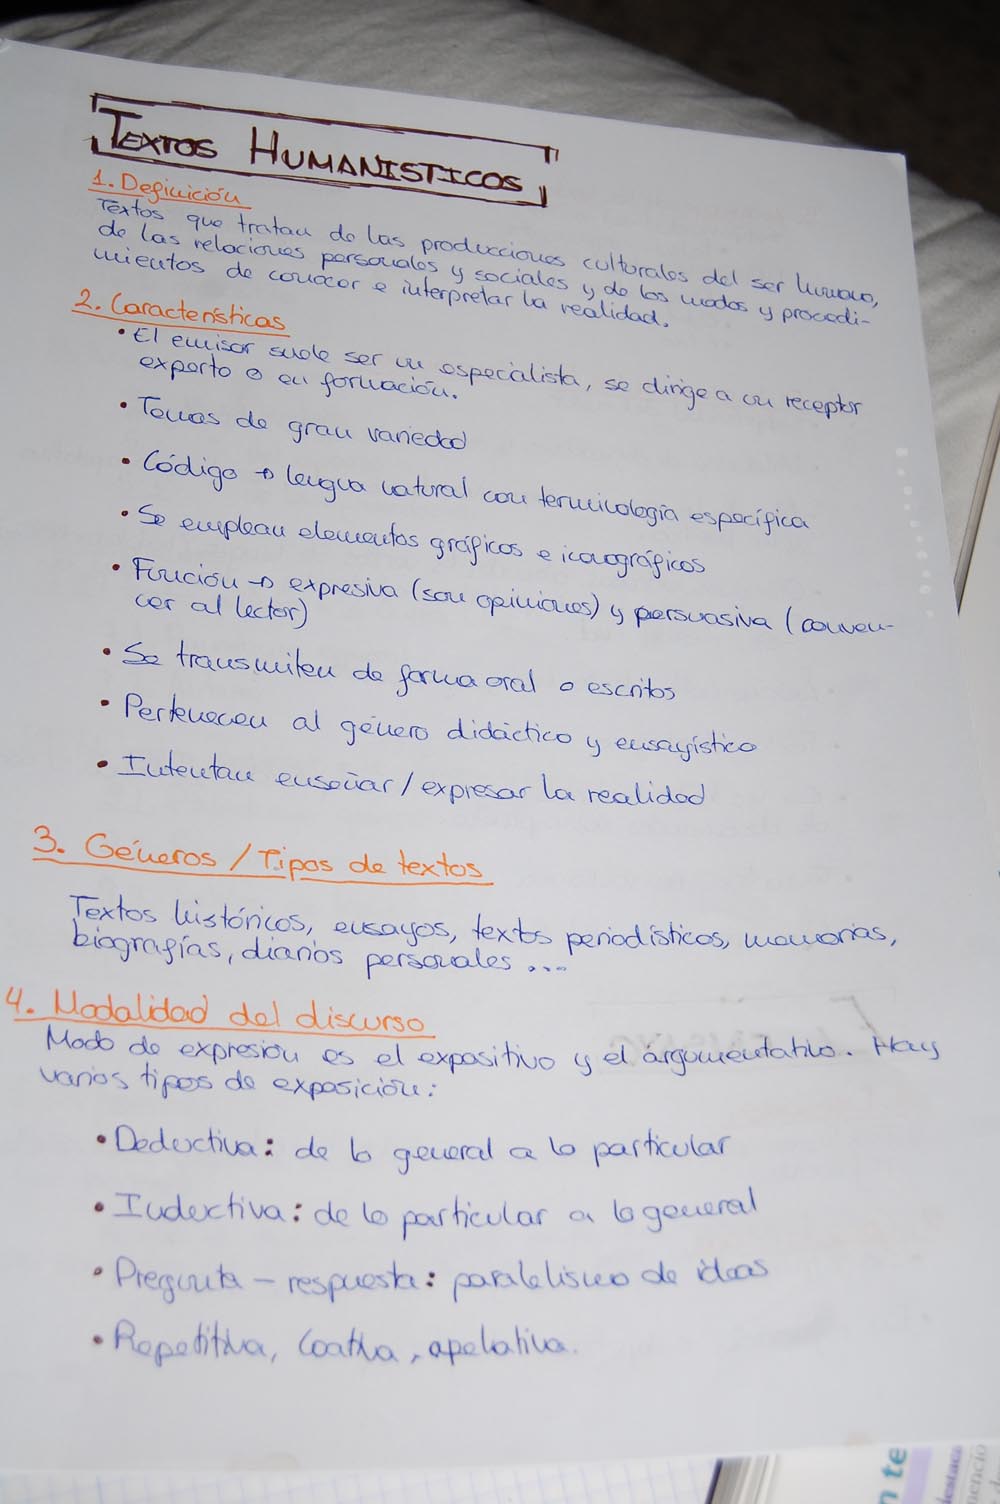 TEXTOS HUMANISTICOS
1. Definición
Textos que tratan de las producciones culturales del ser humano,
de las relaciones personales y sociales y de los modos y procedi-
mientos de conocer e interpretar la realidad.
2. Características
• El emisor suele ser un especialista, se dirige a un receptor
experto o en formación.
• Temas de gran variedad
• Código → lengua natural con terminología específica
• Se emplean elementos gráficos e iconográficos
• Función → expresiva (son opiniones) y persuasiva (conven-
cer al lector)
• Se transmiten de forma oral o escritos
• Pertenecen al género didáctico y ensayístico
• Intentan enseñar/expresar la realidad
3. Géneros / Tipos de textos
Textos históricos, ensayos, textos periodísticos, memorias,
biografías, diarios personales ...
4. Modalidad del discurso
Modo de expresión es el expositivo y el argumentativo. Hay
varios tipos de exposición:
• Deductiva: de lo general a lo particular
• Inductiva: de lo particular a lo general
• Pregunta – respuesta: paralelismo de ideas
• Repetitiva, apelativa.
n te
destaca